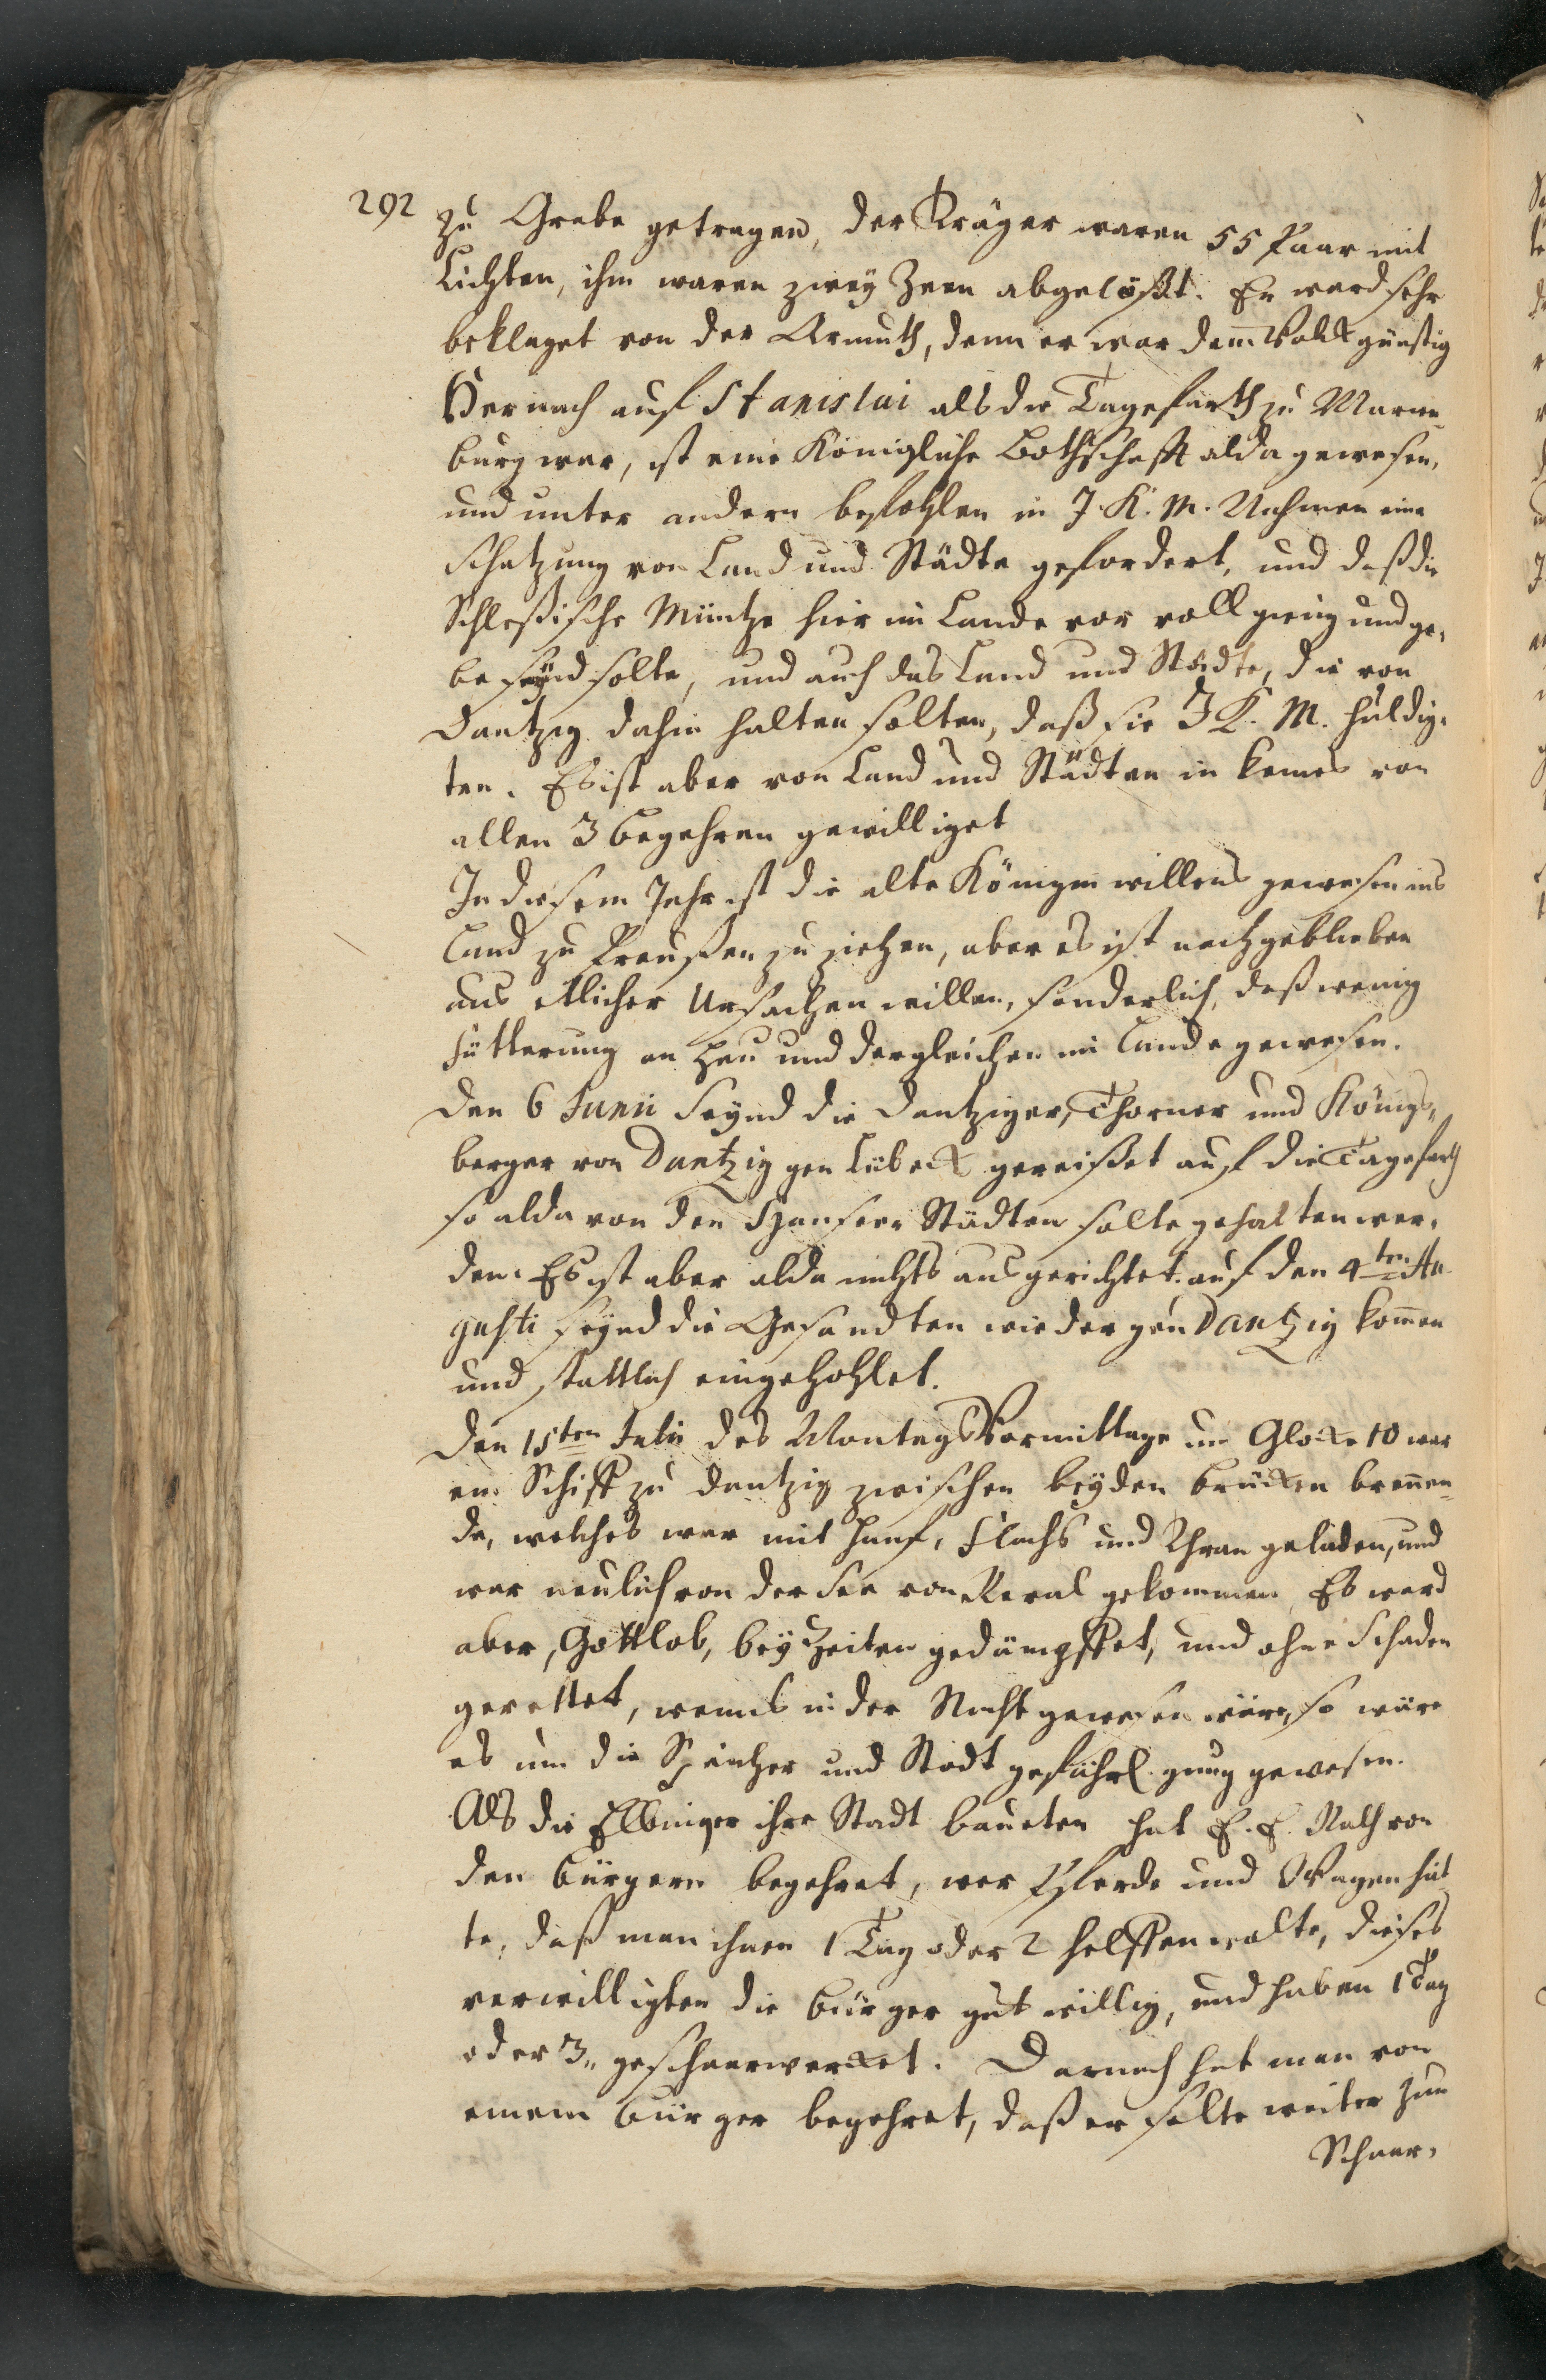 292
zu Grabe getragen, der Träger waren 55 Paar mit
Lichten, ihm waren zwey Zeen abgelößt. Er ward sehr
beklaget von der Armuth, denn er war dem̄ Volck günstig
Hernach auf Stanislai als die Tagefarth zu Marien¬
burg war, ist eine Königliche Bothschafft alda gewesen,
und unter andern befohlen in J. K. M. Nahmen eine
Schatzung von Land und Städte gefordert, und daß die
Schleßische Müntze hier im Lande vor voll gieng und ge¬
be seynd solte, und auch das Land und Städte, die von
Dantzig dahin halten solten, daß sie J K. M. huldig¬
ten. Es ist aber von Land und Städten in keines von
allen 3 begehren gewilliget
In diesem Jahr ist die alte Königin willens gewesen ins
Land zu Preußen zu ziehen, aber es ist nachgeblieben
aus etlicher Ursachen willen, sonderlich, daß wenig
fütterung an Heu und dergleichen im Lande gewesen.
Den 6 Junii seynd die Dantziger, Thorner und Königs¬
berger von Dantzig gen Lübeck gereißet auf die Tagefarth
so alda von den Hanseen Städten solte gehalten wer¬
den. Es ist aber alda nichts ausgerichtet. auf den 4ten Au
gusti seynd die Gesandten wieder gen Dantzig kom̄en
und stattlich eingehohlet.
Den 15ten Julii des Montags Vormittage um Glocke 10 war
ein Schiff zu Dantzig zwischen beyden brücken breñen¬
de, welches war mit Hanf, Flachs und Thran geladen, und
war neulich von der See von Reval gekommen, Es ward
aber, Gottlob, bey Zeiten gedämpffet, und ohne Schaden
gerettet, wenns in der Nacht gewesen wäre, so wäre
es um die Speicher und Stadt gefährl. gnug gewesen.
Als die Elbinger ihre Stadt baueten hat E. E. Rath von
den bürgern begehret, wer Pferde und Wagen hät
te, daß man ihnen 1 Tag oder 2 helffen wolte, dieses
verwilligten die bürger gutwillig, und haben 1 Tag
oder 3„ geschaarwercket. Darnach hat man von
einem bürger begehret, daß er solte weiter zum
Schaar¬